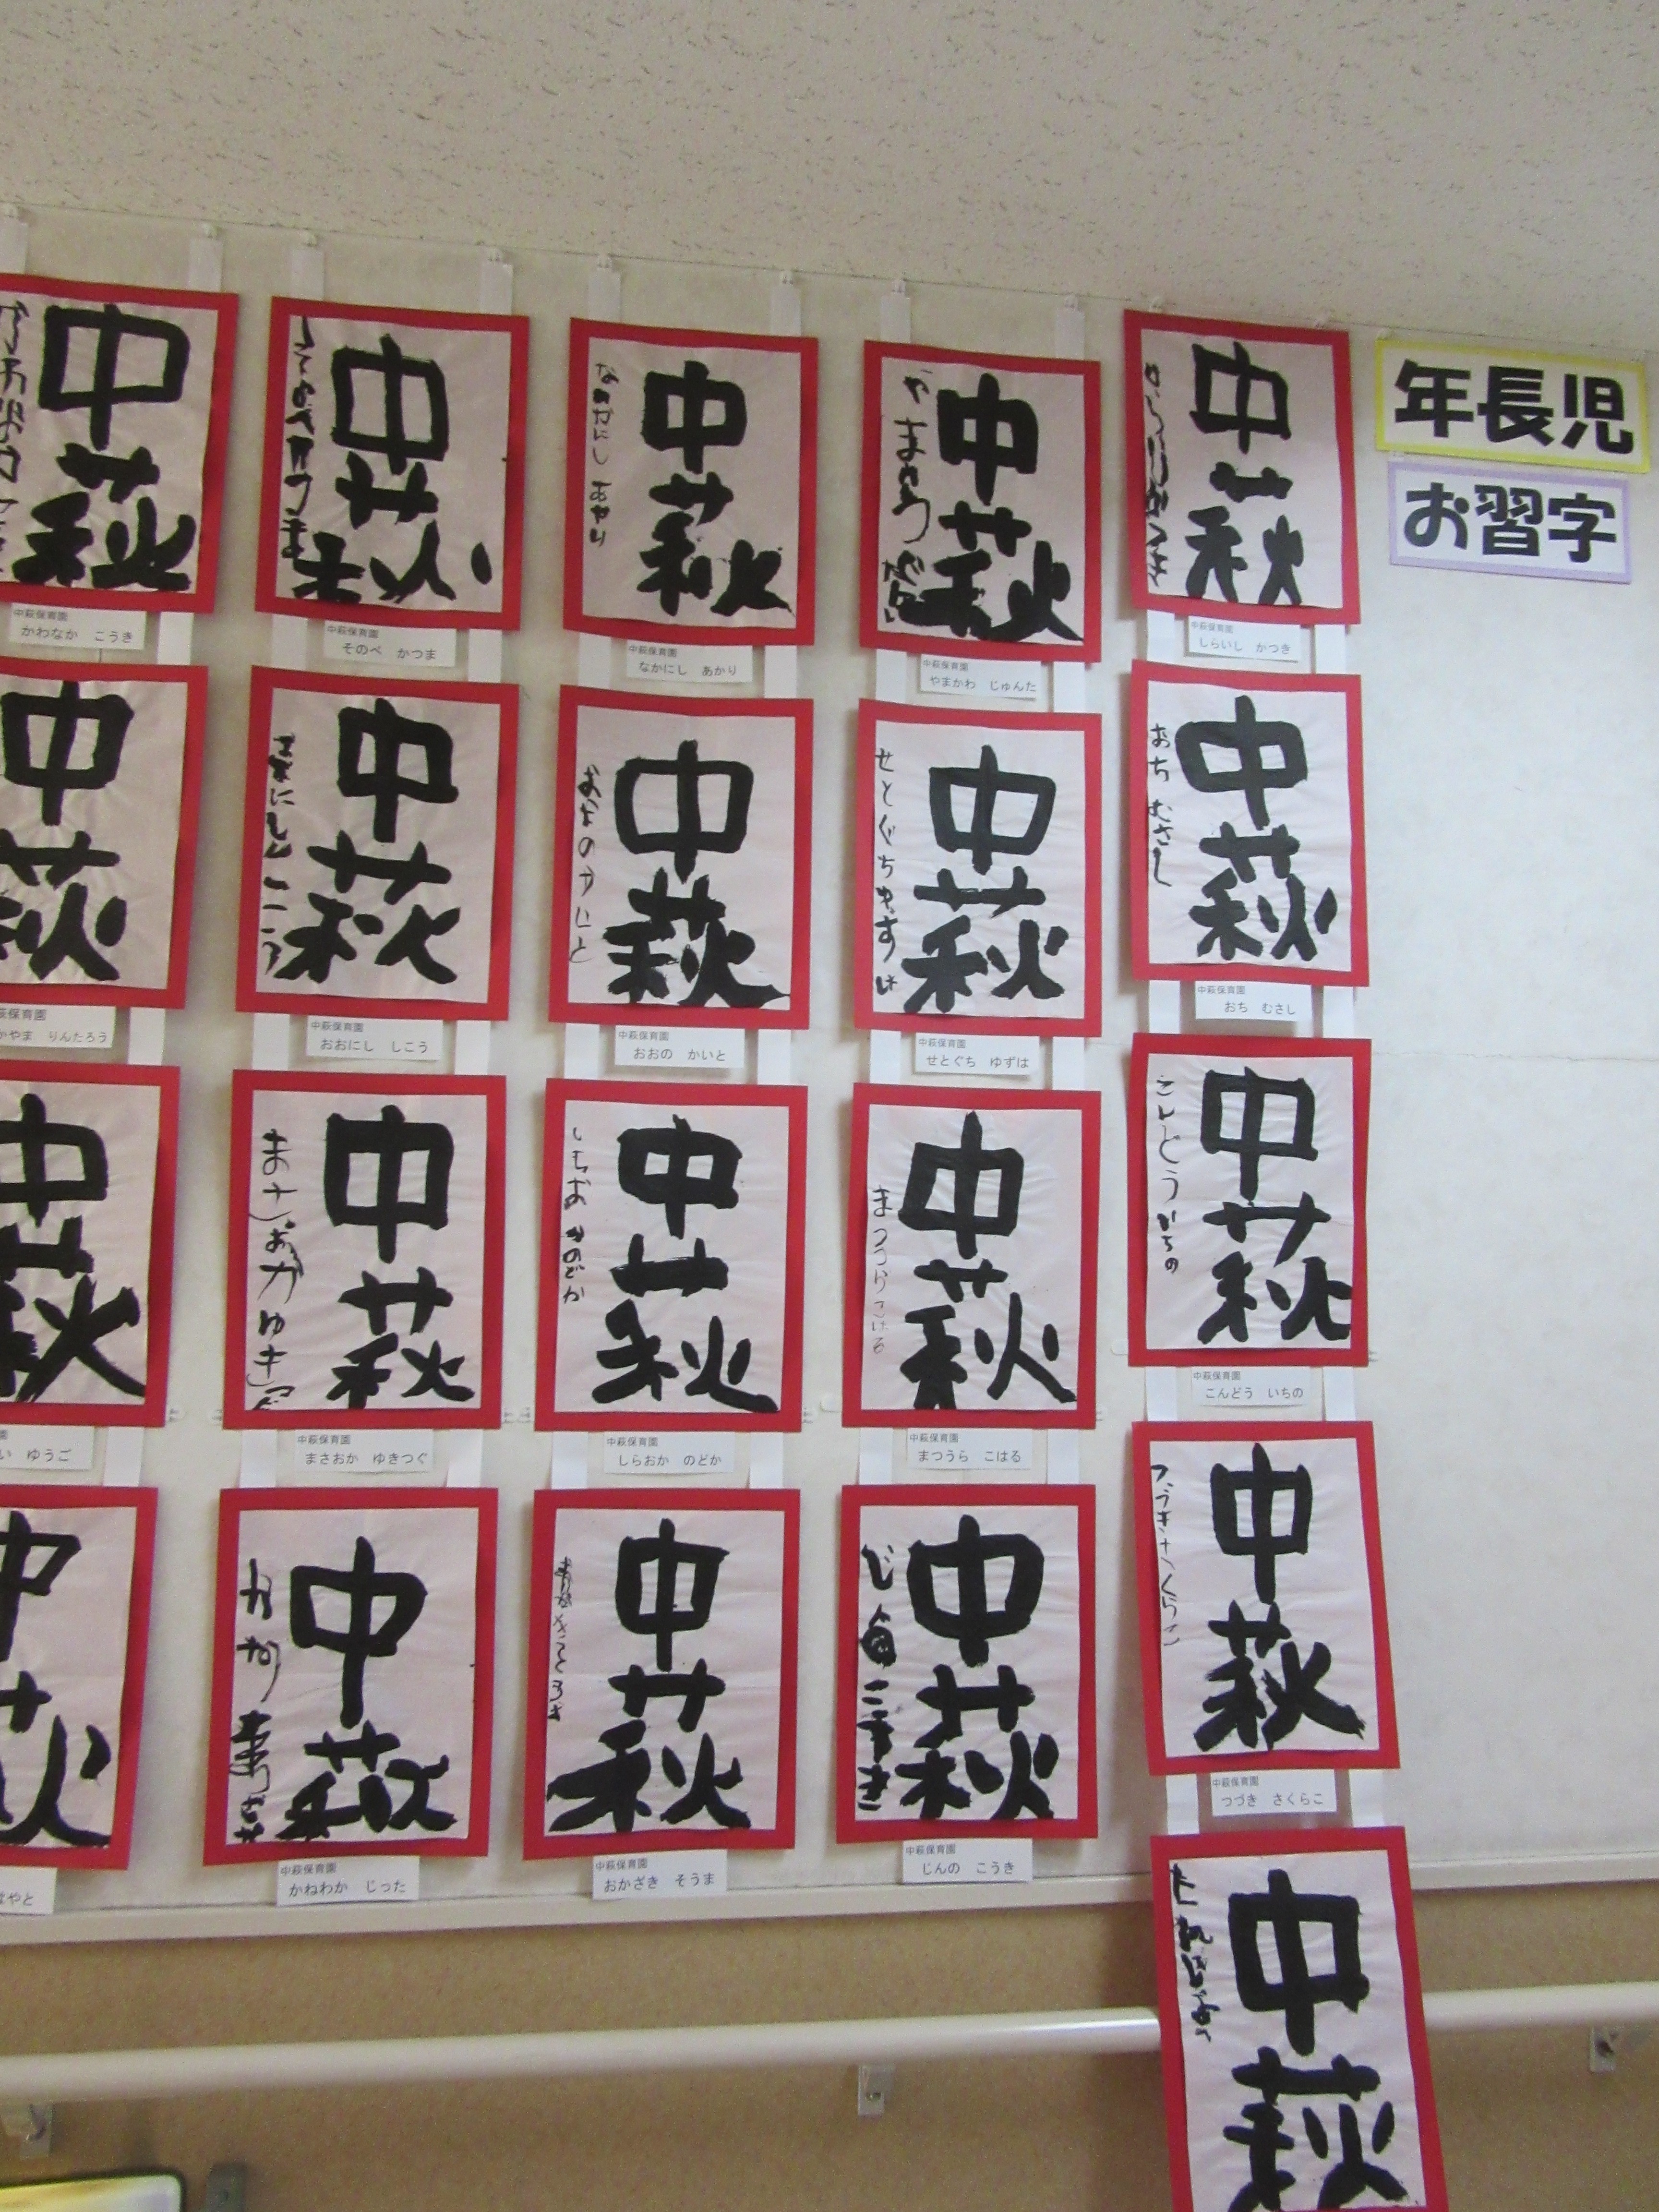 年長児
お習字
中萩
中萩保育園
しらいし かつき
中萩
おち むさし
中萩保育園
おち むさし
中萩
こんどういちの
中萩保育園
こんどう いちの
中萩
つづきさくらこ
中萩保育園
つづき さくらこ
中萩
中萩
中萩保育園
やまかわ じゅんた
中萩
せとぐちゆずは
中萩保育園
せとぐち ゆずは
中萩
まつうらこはる
中萩保育園
まつうら こはる
中萩
中萩保育園
じんの こうき
中萩
なかにしあかり
中萩保育園
なかにし あかり
中萩
おおのかいと
中萩保育園
おおの かいと
中萩
中萩保育園
しらおか のどか
中萩
中萩保育園
おかざき そうま
中萩
中萩保育園
そのべ かつま
中萩
中萩保育園
おおにし しこう
中萩
まさおかゆきつぐ
中萩保育園
まさおか ゆきつぐ
中萩
中萩保育園
かねわか じった
中萩
中萩保育園
かわなか こうき
中萩
やま りんたろう
中萩
い ゆうご
中萩
やと